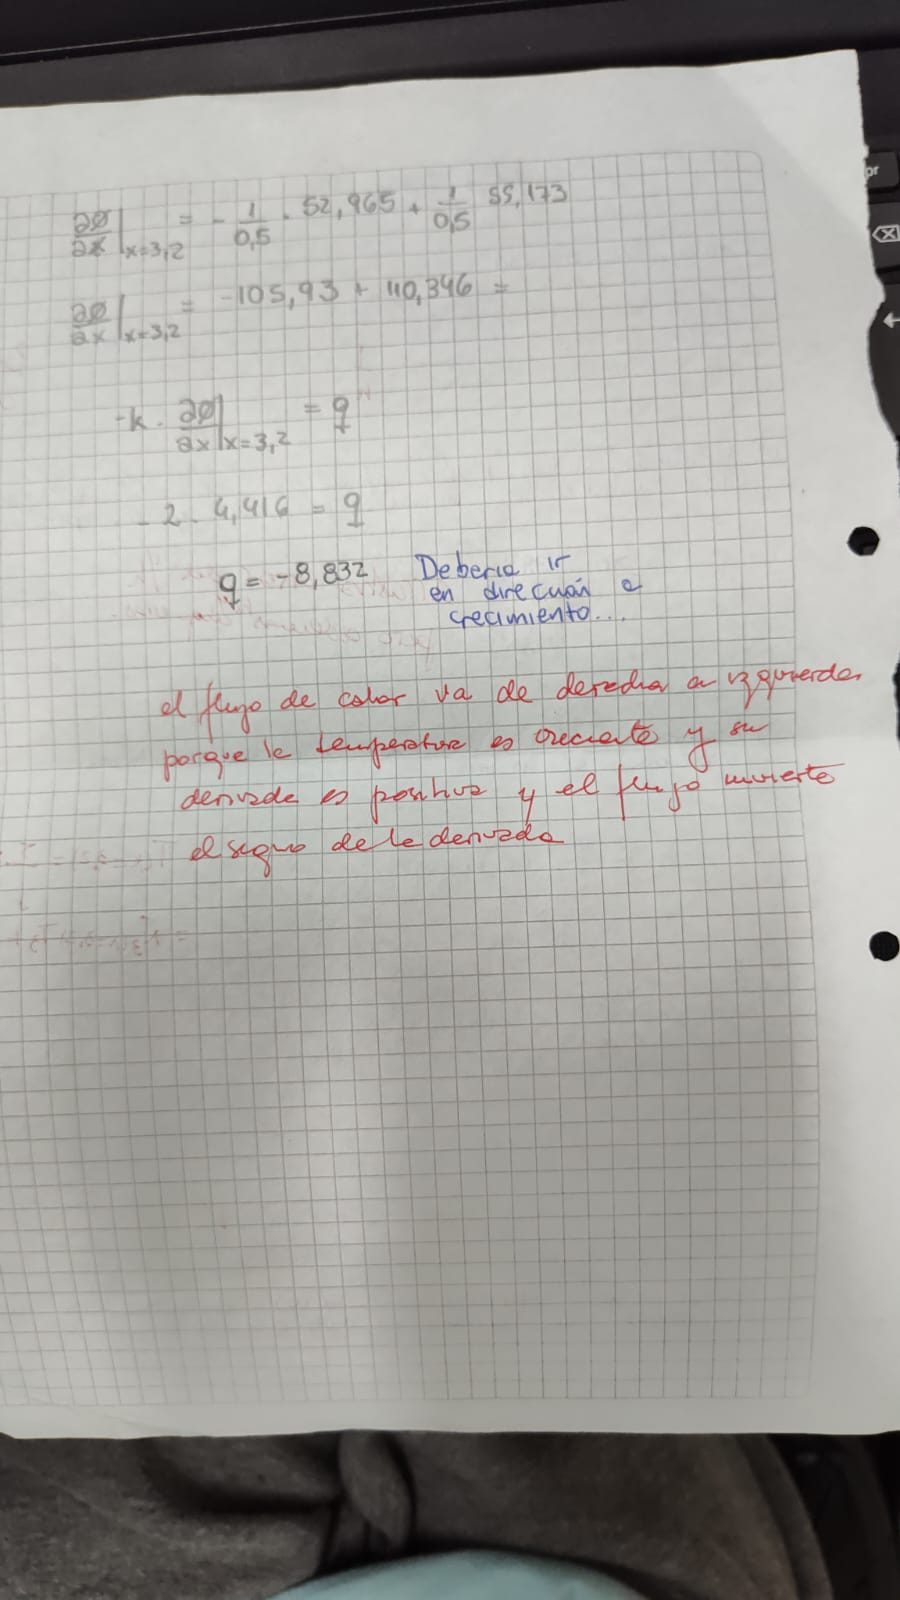 ∂Ø/∂x |x=3,2 = - 1/0,5 · 52,965 + 1/0,5 55,173
∂Ø/∂x |x=3,2 = -105,93 + 110,346 =
-k · ∂Ø/∂x |x=3,2 = q
- 2 · 4,416 = q
q = -8,832 Deberia ir
en dirección a
crecimiento...
el flujo de calor va de derecha a izquierda
porque la temperatura es creciente y su
derivada es positiva y el flujo invierte
el signo de la derivada